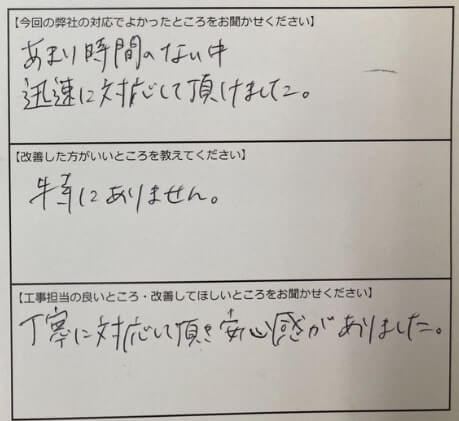 【今回の弊社の対応でよかったところをお聞かせください】
あまり時間のない中
迅速に対応して頂けました。
【改善した方がいいところを教えてください】
特にありません。
【工事担当の良いところ・改善してほしいところをお聞かせください】
丁寧に対応して頂き安心感がありました。